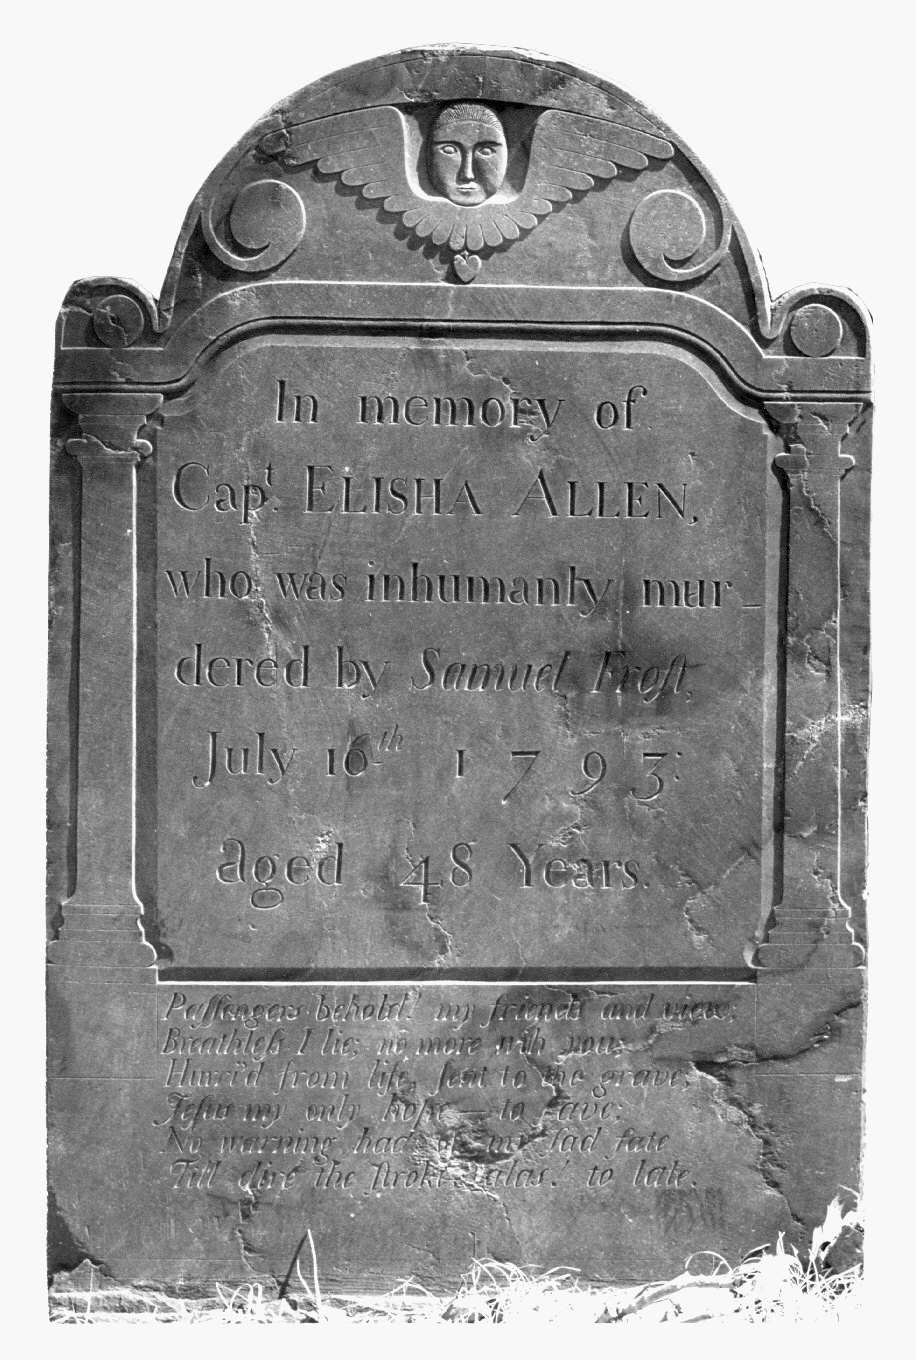 In memory of
Capt. ELISHA ALLEN,
who was inhumanly mur-
dered by Samuel Froſt,
July 16th 1793:
aged 48 Years.
Paſſengers behold! my friends and view;
Breathleſs I lie; no more with you;
Hurri'd from life, ſent to the grave;
Jeſus my only hope to ſave;
No warning had of my ſad fate
Till dire the ſtroke alas! to late.